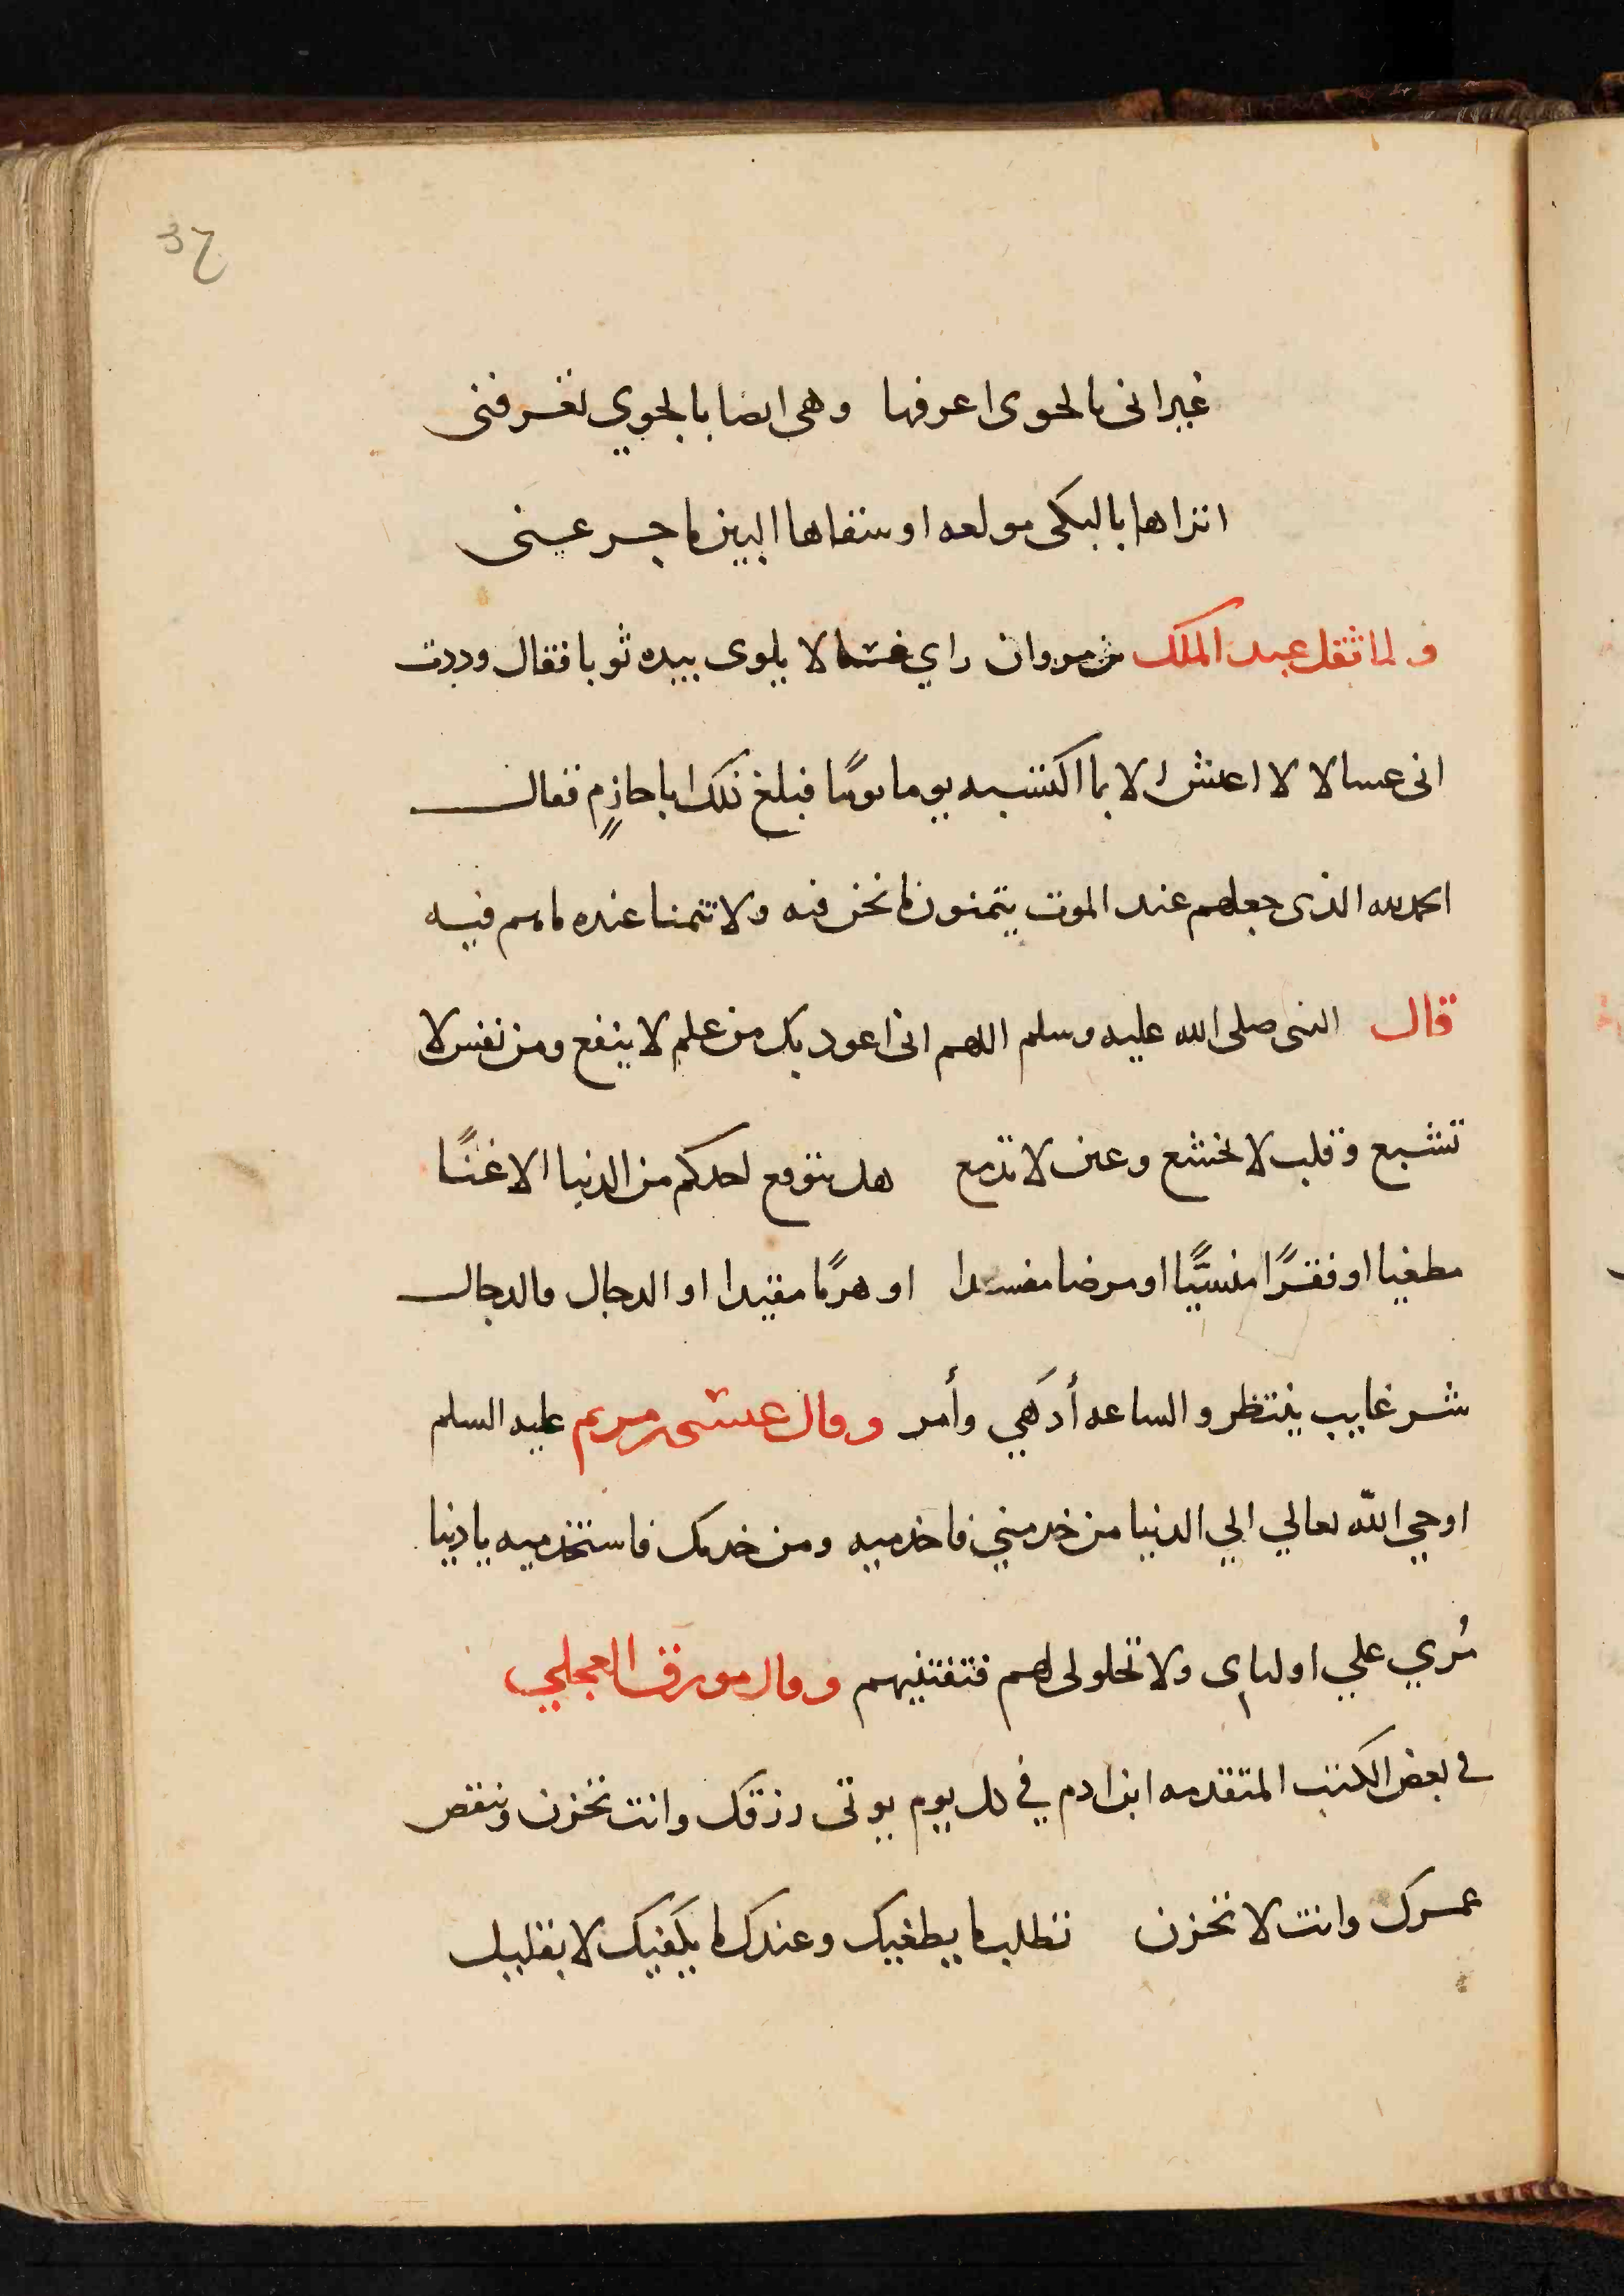 37
غير اني بالجوى اعرفها وهى ايضا بالجوي تعرفنى
اتراها بالبكى مولعه او سقاها البين ما جرعنى
ولما ثقل عبد الملك بن مروان راي غسالا يلوى بيده ثوبا فقال وددت
انى غسالا لا اعيش الا بما اكتسبه يوما يومًا فبلغ ذلك ابا حازمٍ فقال
الحمد لله الذى جعلهم عند الموت يتمنون ما نحن فيه ولا نتمنا عنده ما هم فيه
قال النبى صلى الله عليه وسلم اللهم انى اعوذ بك من علم لا ينفع ومن نفس لا
تشبع وقلب لا يخشع وعين لا تدمع هل يتوقع احدكم من الدنيا الا غنًا
مطغيا او فقرًا منسيًّا او مرضا مفسدا او هرمًا مقيدا او الدجال فالدجال
شر غايب ينتظر والساعه أدَهي وأمر وقال عيسى بن مريم عليه السلم
اوحي اللّه تعالي الي الدنيا من خدمني فاخدميه ومن خدمك فاستخدميه يا دنيا
مُري علي اوليای ولا تحلولى لهم فتفتنيهم وقال مورق العجلي
في بعض الكتب المتقدمه ابن ادم في كل يوم يوتى رزقك وانت تحزن وينقص
عمرك وانت لا تحزن تطلب ما يطغيك وعندك ما يكفيك لا بقليل